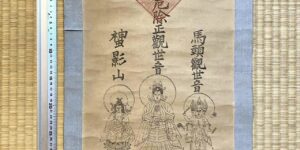 馬頭觀世音
除正觀世音
影山